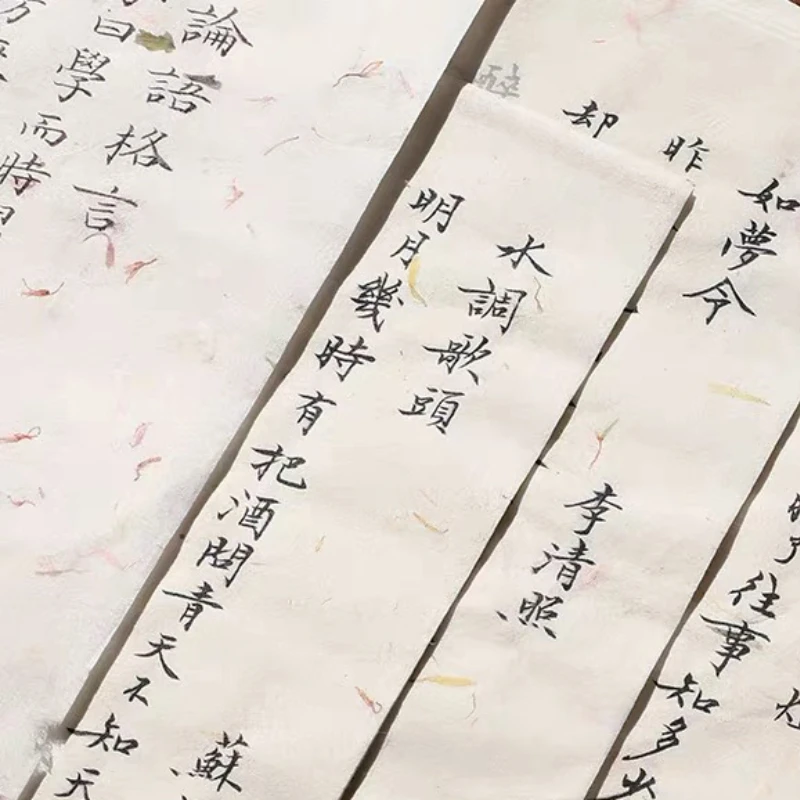 了往事知多
如夢令
李清照
昨
却
醉
水調歌頭
蘇
明月幾時有把酒問青天不知天
論語格言
曰學而時